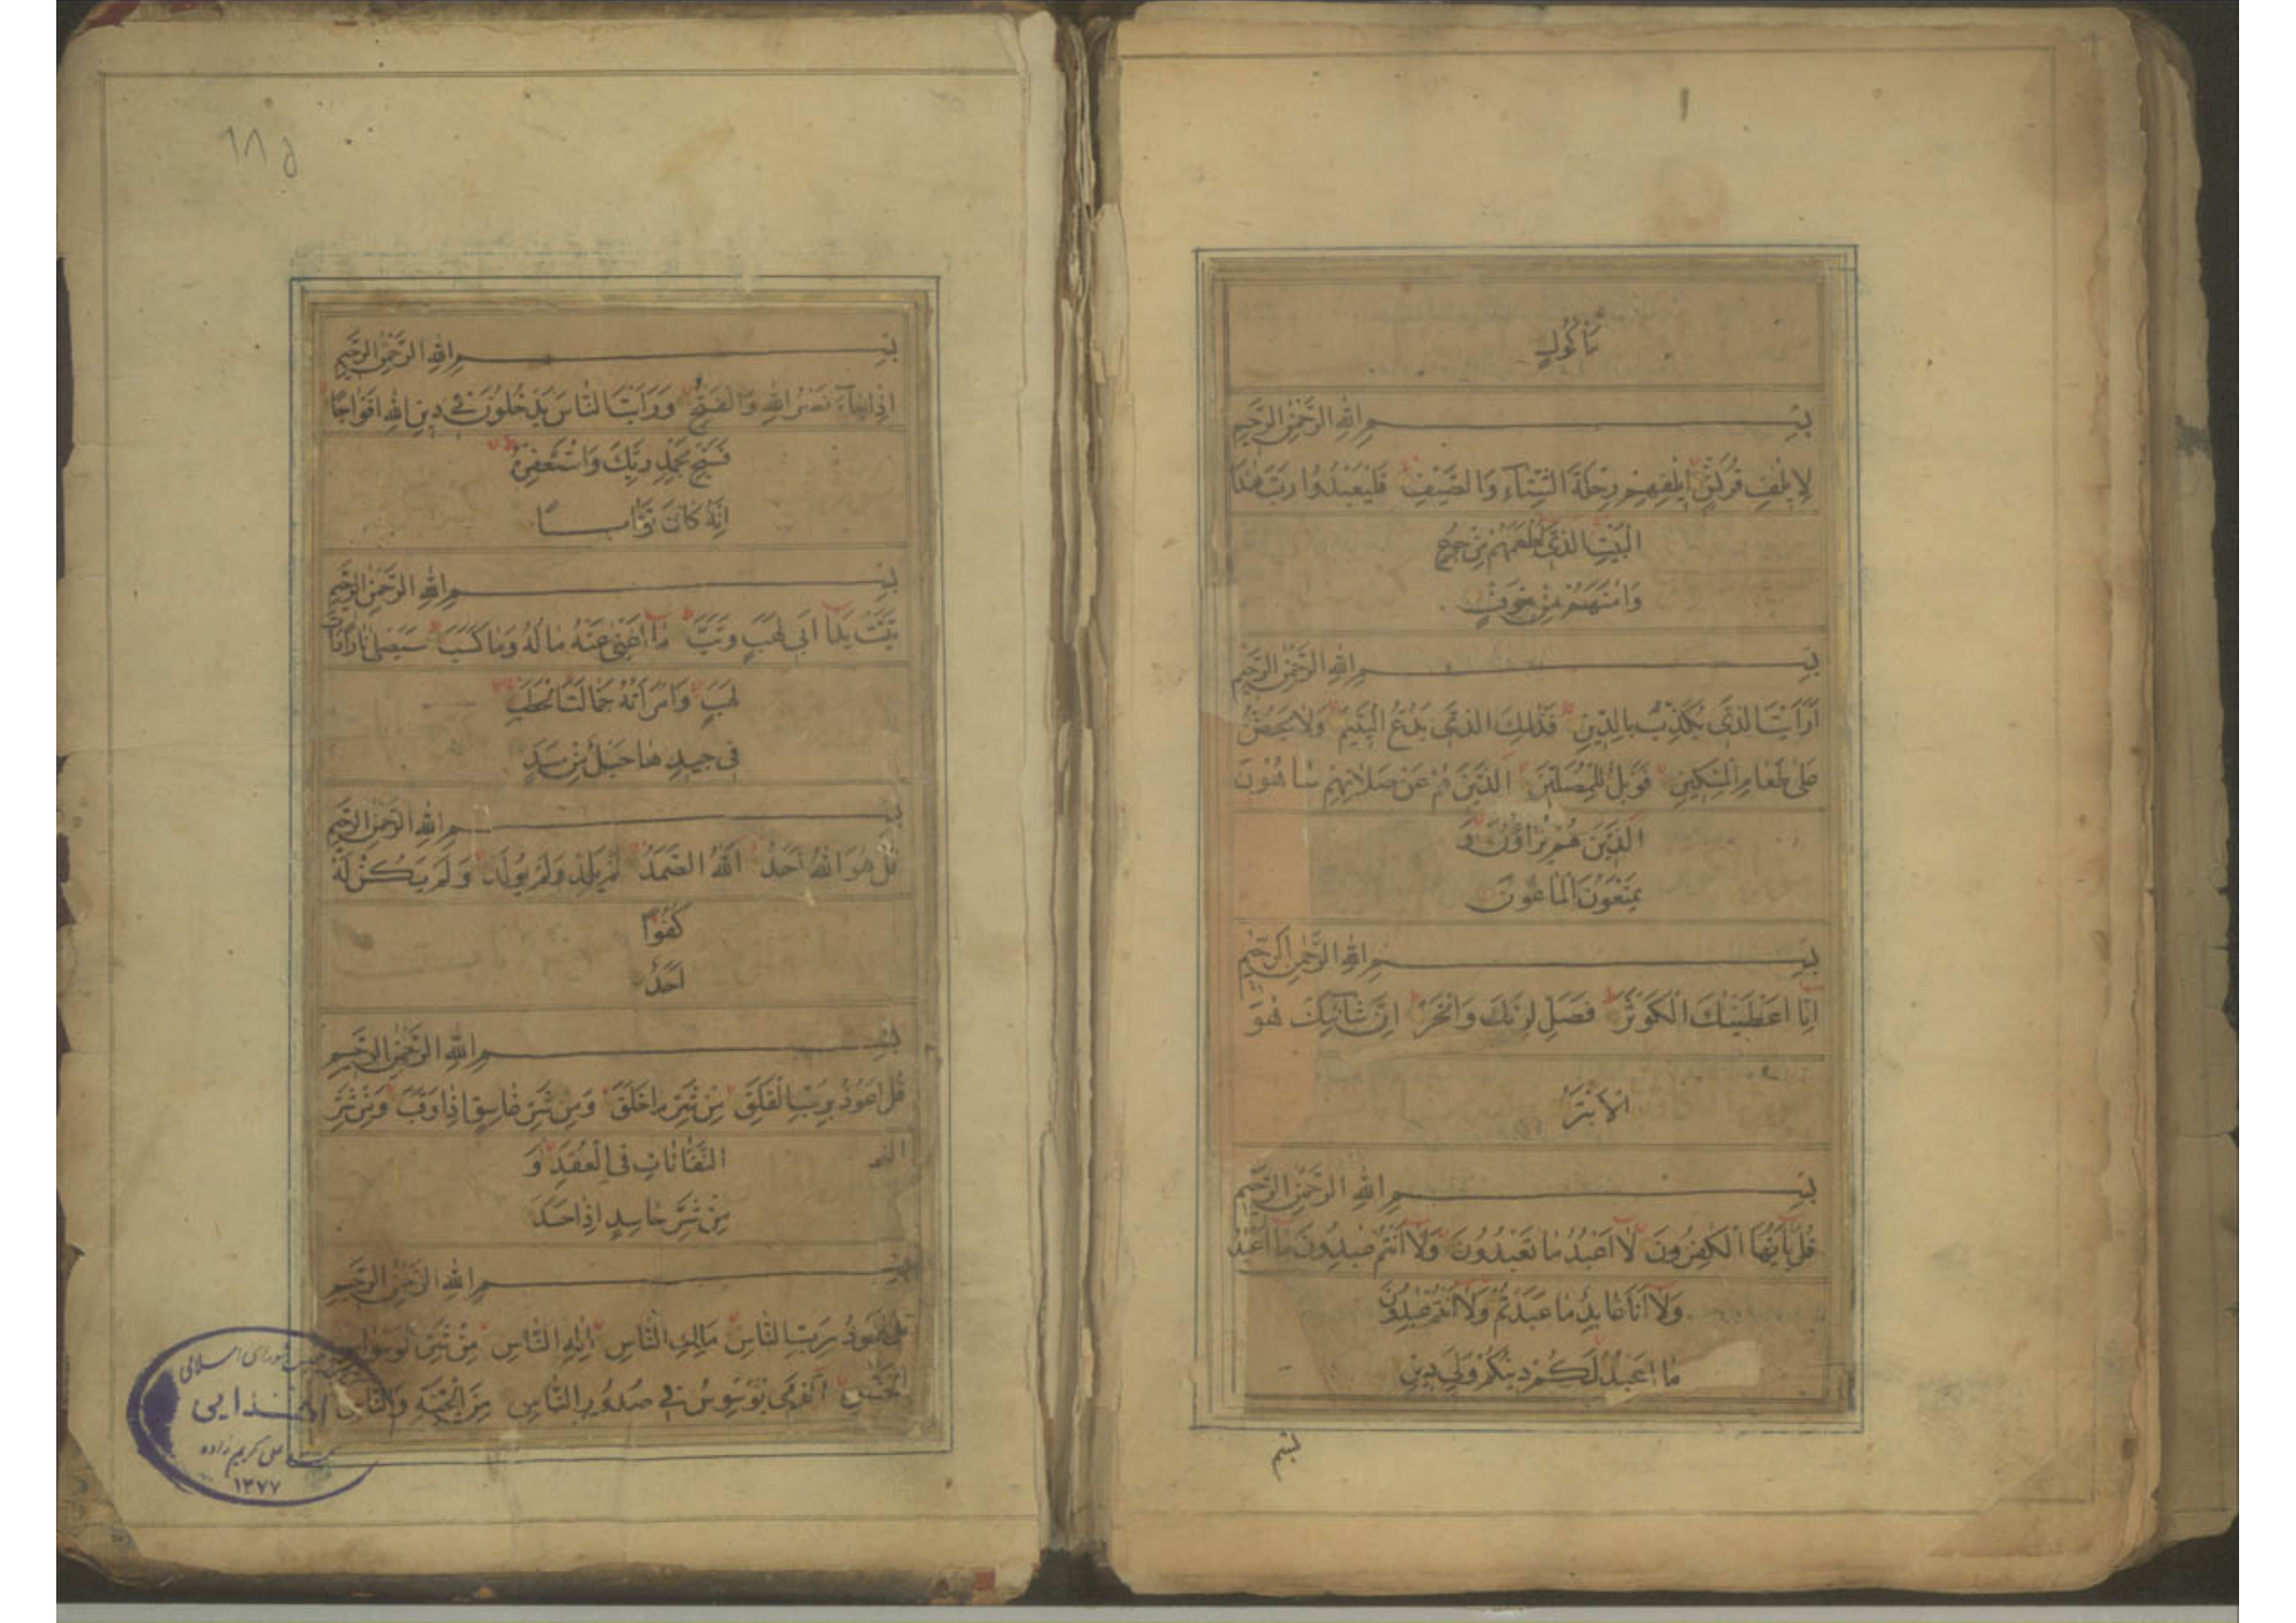 مَأكُولٍ
بِسْمِ اللهِ الرَّحْمٰنِ الرَّحِيمِ
لِإِيلٰفِ قُرَيْشٍ إِيلٰفِهِمْ رِحْلَةَ الشِّتَآءِ وَالصَّيْفِ فَلْيَعْبُدُوا رَبَّ هٰذَا
الْبَيْتِ الَّذِي أَطْعَمَهُمْ مِنْ جُوعٍ
وَاٰمَنَهُمْ مِنْ خَوْفٍ
بِسْمِ اللهِ الرَّحْمٰنِ الرَّحِيمِ
أَرَأَيْتَ الَّذِي يُكَذِّبُ بِالدِّينِ فَذٰلِكَ الَّذِي يَدُعُّ الْيَتِيمَ وَلَا يَحُضُّ
عَلٰى طَعَامِ الْمِسْكِينِ فَوَيْلٌ لِلْمُصَلِّينَ الَّذِينَ هُمْ عَنْ صَلَاتِهِمْ سَاهُونَ
الَّذِينَ هُمْ يُرَاؤُنَ وَ
يَمْنَعُونَ الْمَاعُونَ
بِسْمِ اللهِ الرَّحْمٰنِ الرَّحِيمِ
إِنَّا أَعْطَيْنٰكَ الْكَوْثَرَ فَصَلِّ لِرَبِّكَ وَانْحَرْ إِنَّ شَانِئَكَ هُوَ
الْأَبْتَرُ
بِسْمِ اللهِ الرَّحْمٰنِ الرَّحِيمِ
قُلْ يٰأَيُّهَا الْكٰفِرُونَ لَا أَعْبُدُ مَا تَعْبُدُونَ وَلَا أَنْتُمْ عٰبِدُونَ مَا أَعْبُدُ
وَلَا أَنَا عَابِدٌ مَا عَبَدْتُمْ وَلَا أَنْتُمْ عٰبِدُونَ
مَا أَعْبُدُ لَكُمْ دِينُكُمْ وَلِيَ دِينِ
بسم
١٨٥
بِسْمِ اللهِ الرَّحْمٰنِ الرَّحِيمِ
إِذَا جَآءَ نَصْرُ اللهِ وَالْفَتْحُ وَرَأَيْتَ النَّاسَ يَدْخُلُونَ فِي دِينِ اللهِ أَفْوَاجًا
فَسَبِّحْ بِحَمْدِ رَبِّكَ وَاسْتَغْفِرْهُ
إِنَّهُ كَانَ تَوَّابًا
بِسْمِ اللهِ الرَّحْمٰنِ الرَّحِيمِ
تَبَّتْ يَدَا أَبِي لَهَبٍ وَتَبَّ مَا أَغْنٰى عَنْهُ مَالُهُ وَمَا كَسَبَ سَيَصْلٰى نَارًا ذَاتَ
لَهَبٍ وَامْرَأَتُهُ حَمَّالَةَ الْحَطَبِ
فِي جِيدِهَا حَبْلٌ مِنْ مَسَدٍ
بِسْمِ اللهِ الرَّحْمٰنِ الرَّحِيمِ
قُلْ هُوَ اللهُ أَحَدٌ اَللهُ الصَّمَدُ لَمْ يَلِدْ وَلَمْ يُولَدْ وَلَمْ يَكُنْ لَهُ
كُفُوًا
أَحَدٌ
بِسْمِ اللهِ الرَّحْمٰنِ الرَّحِيمِ
قُلْ أَعُوذُ بِرَبِّ الْفَلَقِ مِنْ شَرِّ مَا خَلَقَ وَمِنْ شَرِّ غَاسِقٍ إِذَا وَقَبَ وَمِنْ شَرِّ
النَّفَّاثَاتِ فِي الْعُقَدِ وَ
مِنْ شَرِّ حَاسِدٍ إِذَا حَسَدَ
بِسْمِ اللهِ الرَّحْمٰنِ الرَّحِيمِ
قُلْ أَعُوذُ بِرَبِّ النَّاسِ مَلِكِ النَّاسِ إِلٰهِ النَّاسِ مِنْ شَرِّ الْوَسْوَاسِ
الْخَنَّاسِ اَلَّذِي يُوَسْوِسُ فِي صُدُورِ النَّاسِ مِنَ الْجِنَّةِ وَالنَّاسِ
مجلس شورای اسلامی
اهدایی
علی کریم زاده
١٣٧٧